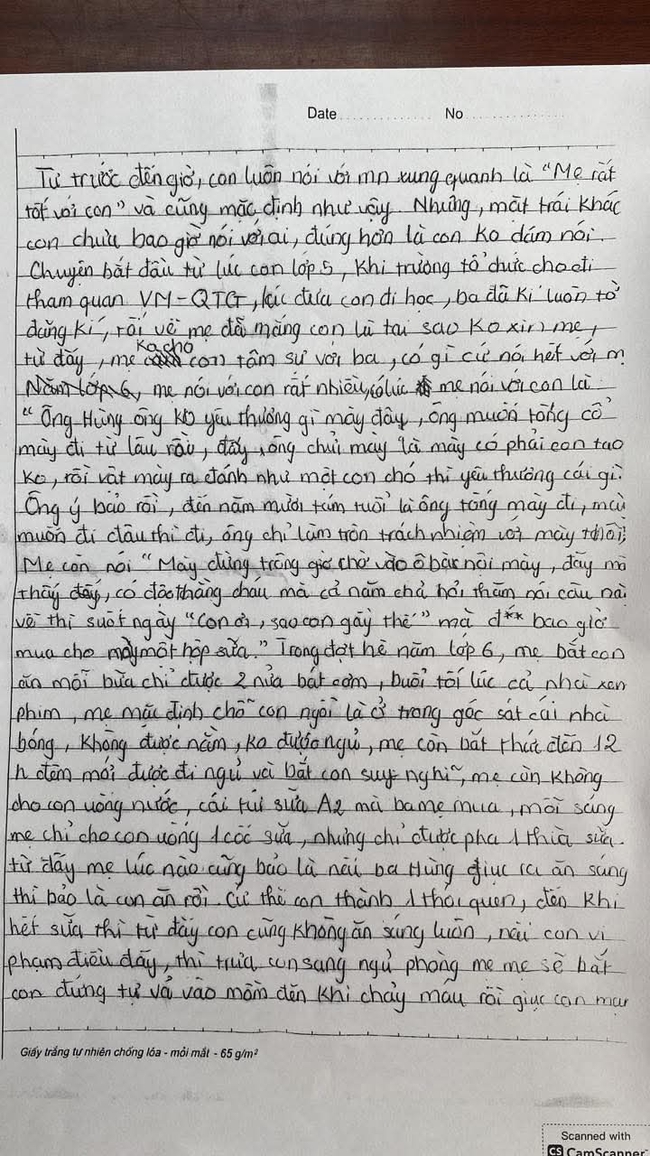 Date No
Từ trước đến giờ, con luôn nói với mn xung quanh là "Mẹ rất
tốt với con" và cũng mặc định như vậy. Nhưng, mặt trái khác
con chưa bao giờ nói với ai, đúng hơn là con ko dám nói.
Chuyện bắt đầu từ lúc con lớp 5, khi trường tổ chức cho đi
tham quan VM-QTG, lúc đưa con đi học, ba đã kí luôn tờ
đăng kí, rồi về mẹ đã mắng con là tại sao ko xin mẹ,
từ đấy, mẹ ko cho con tâm sự với ba, có gì cứ nói hết với m
Năm lớp 6, mẹ nói với con rất nhiều, có lúc mẹ nói với con là
"Ông Hùng ông ko yêu thương gì mày đâu, ông muốn tống cổ
mày đi từ lâu rồi, đấy, ông chửi mày là mày có phải con tao
ko, rồi vật mày ra đánh như một con chó thì yêu thương cái gì.
Ông ý bảo rồi, đến năm mười tám tuổi là ông tống mày đi, mày
muốn đi đâu thì đi, ông chỉ làm tròn trách nhiệm với mày thôi;
Mẹ còn nói "Mày đừng trông chờ vào ô bà nội mày, đấy mà
thấy đấy, có độc thằng cháu mà cả năm chả hỏi thăm nói câu nà
về thì suốt ngày "con ơi, sao con gầy thế" mà đ** bao giờ
mua cho mày một hộp sữa." Trong đợt hè năm lớp 6, mẹ bắt con
ăn mỗi bữa chỉ được 2 nửa bát cơm, buổi tối lúc cả nhà xem
phim, mẹ mặc định chỗ con ngồi là ở trong góc sát cái nhà
bóng, không được nằm, ko được ngủ, mẹ còn bắt thức đến 12
h đêm mới được đi ngủ và bắt con suy nghĩ, mẹ còn không
cho con uống nước, cái túi sữa A2 mà ba mẹ mua, mỗi sáng
mẹ chỉ cho con uống 1 cốc sữa, nhưng chỉ được pha 1 thìa sữa.
từ đấy mẹ lúc nào cũng bảo là nếu ba Hùng giục ra ăn sáng
thì bảo là con ăn rồi. Cứ thế con thành 1 thói quen, đến khi
hết sữa thì từ đấy con cũng không ăn sáng luôn, nếu con vi
phạm điều đấy, thì trưa con sang ngủ phòng mẹ mẹ sẽ bắt
con đứng tự vả vào mồm đến khi chảy máu rồi giục con mau
Giấy trắng tự nhiên chống lóa - mỏi mắt - 65 g/m²
Scanned with
CS CamScanner